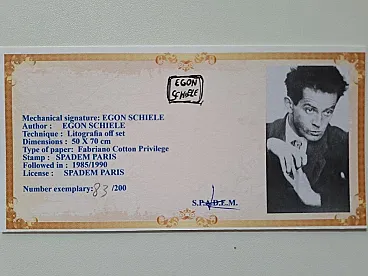 EGON
SCHIELE
Mechanical signature: EGON SCHIELE
Author : EGON SCHIELE
Technique : Litografia off set
Dimensions : 50 X 70 cm
Type of paper: Fabriano Cotton Privilege
Stamp : SPADEM PARIS
Followed in : 1985/1990
License : SPADEM PARIS
Number exemplary: 83 /200
S.P.A.D.E.M.